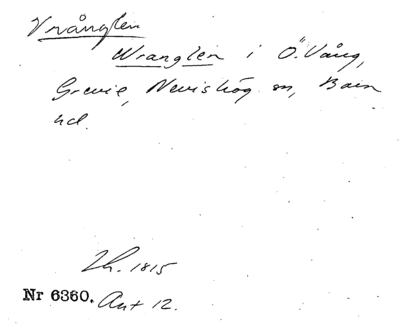 Vrånglen
Wranglen i Ö. Vång,
Grevie, Nevishög sn, Bara
hd.
Lh. 1815
Nr 6360. Ant 12.